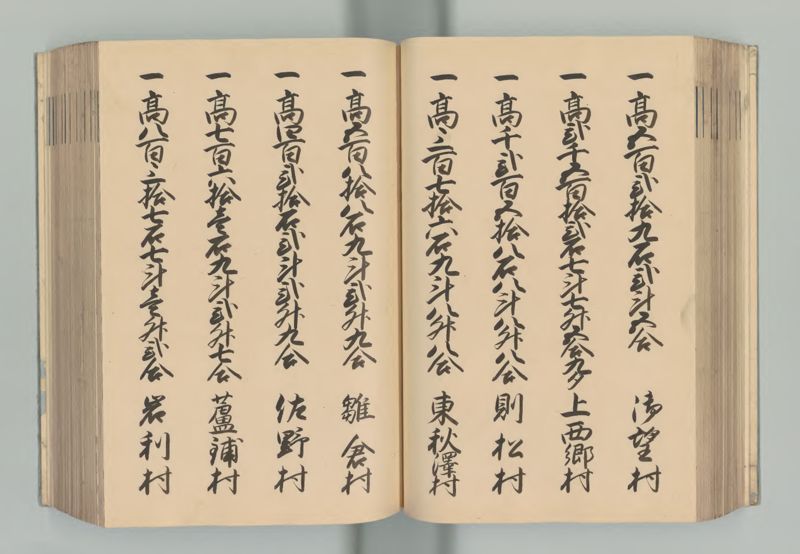 一高五百弐拾九石弐斗五合 御望村
一高弐千五百拾弐石七斗七升五合九夕 上西郷村
一高千弐百五拾八石八斗八升八合 則松村
一高三百七拾六石九斗八升八合 東秋澤村
一高五百八拾八石九斗弐升九合 雛倉村
一高四百弐拾石弐斗弐升九合 佐野村
一高七百六拾壱石九斗弐升七合 蘆鋪村
一高八百三拾七石七斗壱升弐合 岩利村